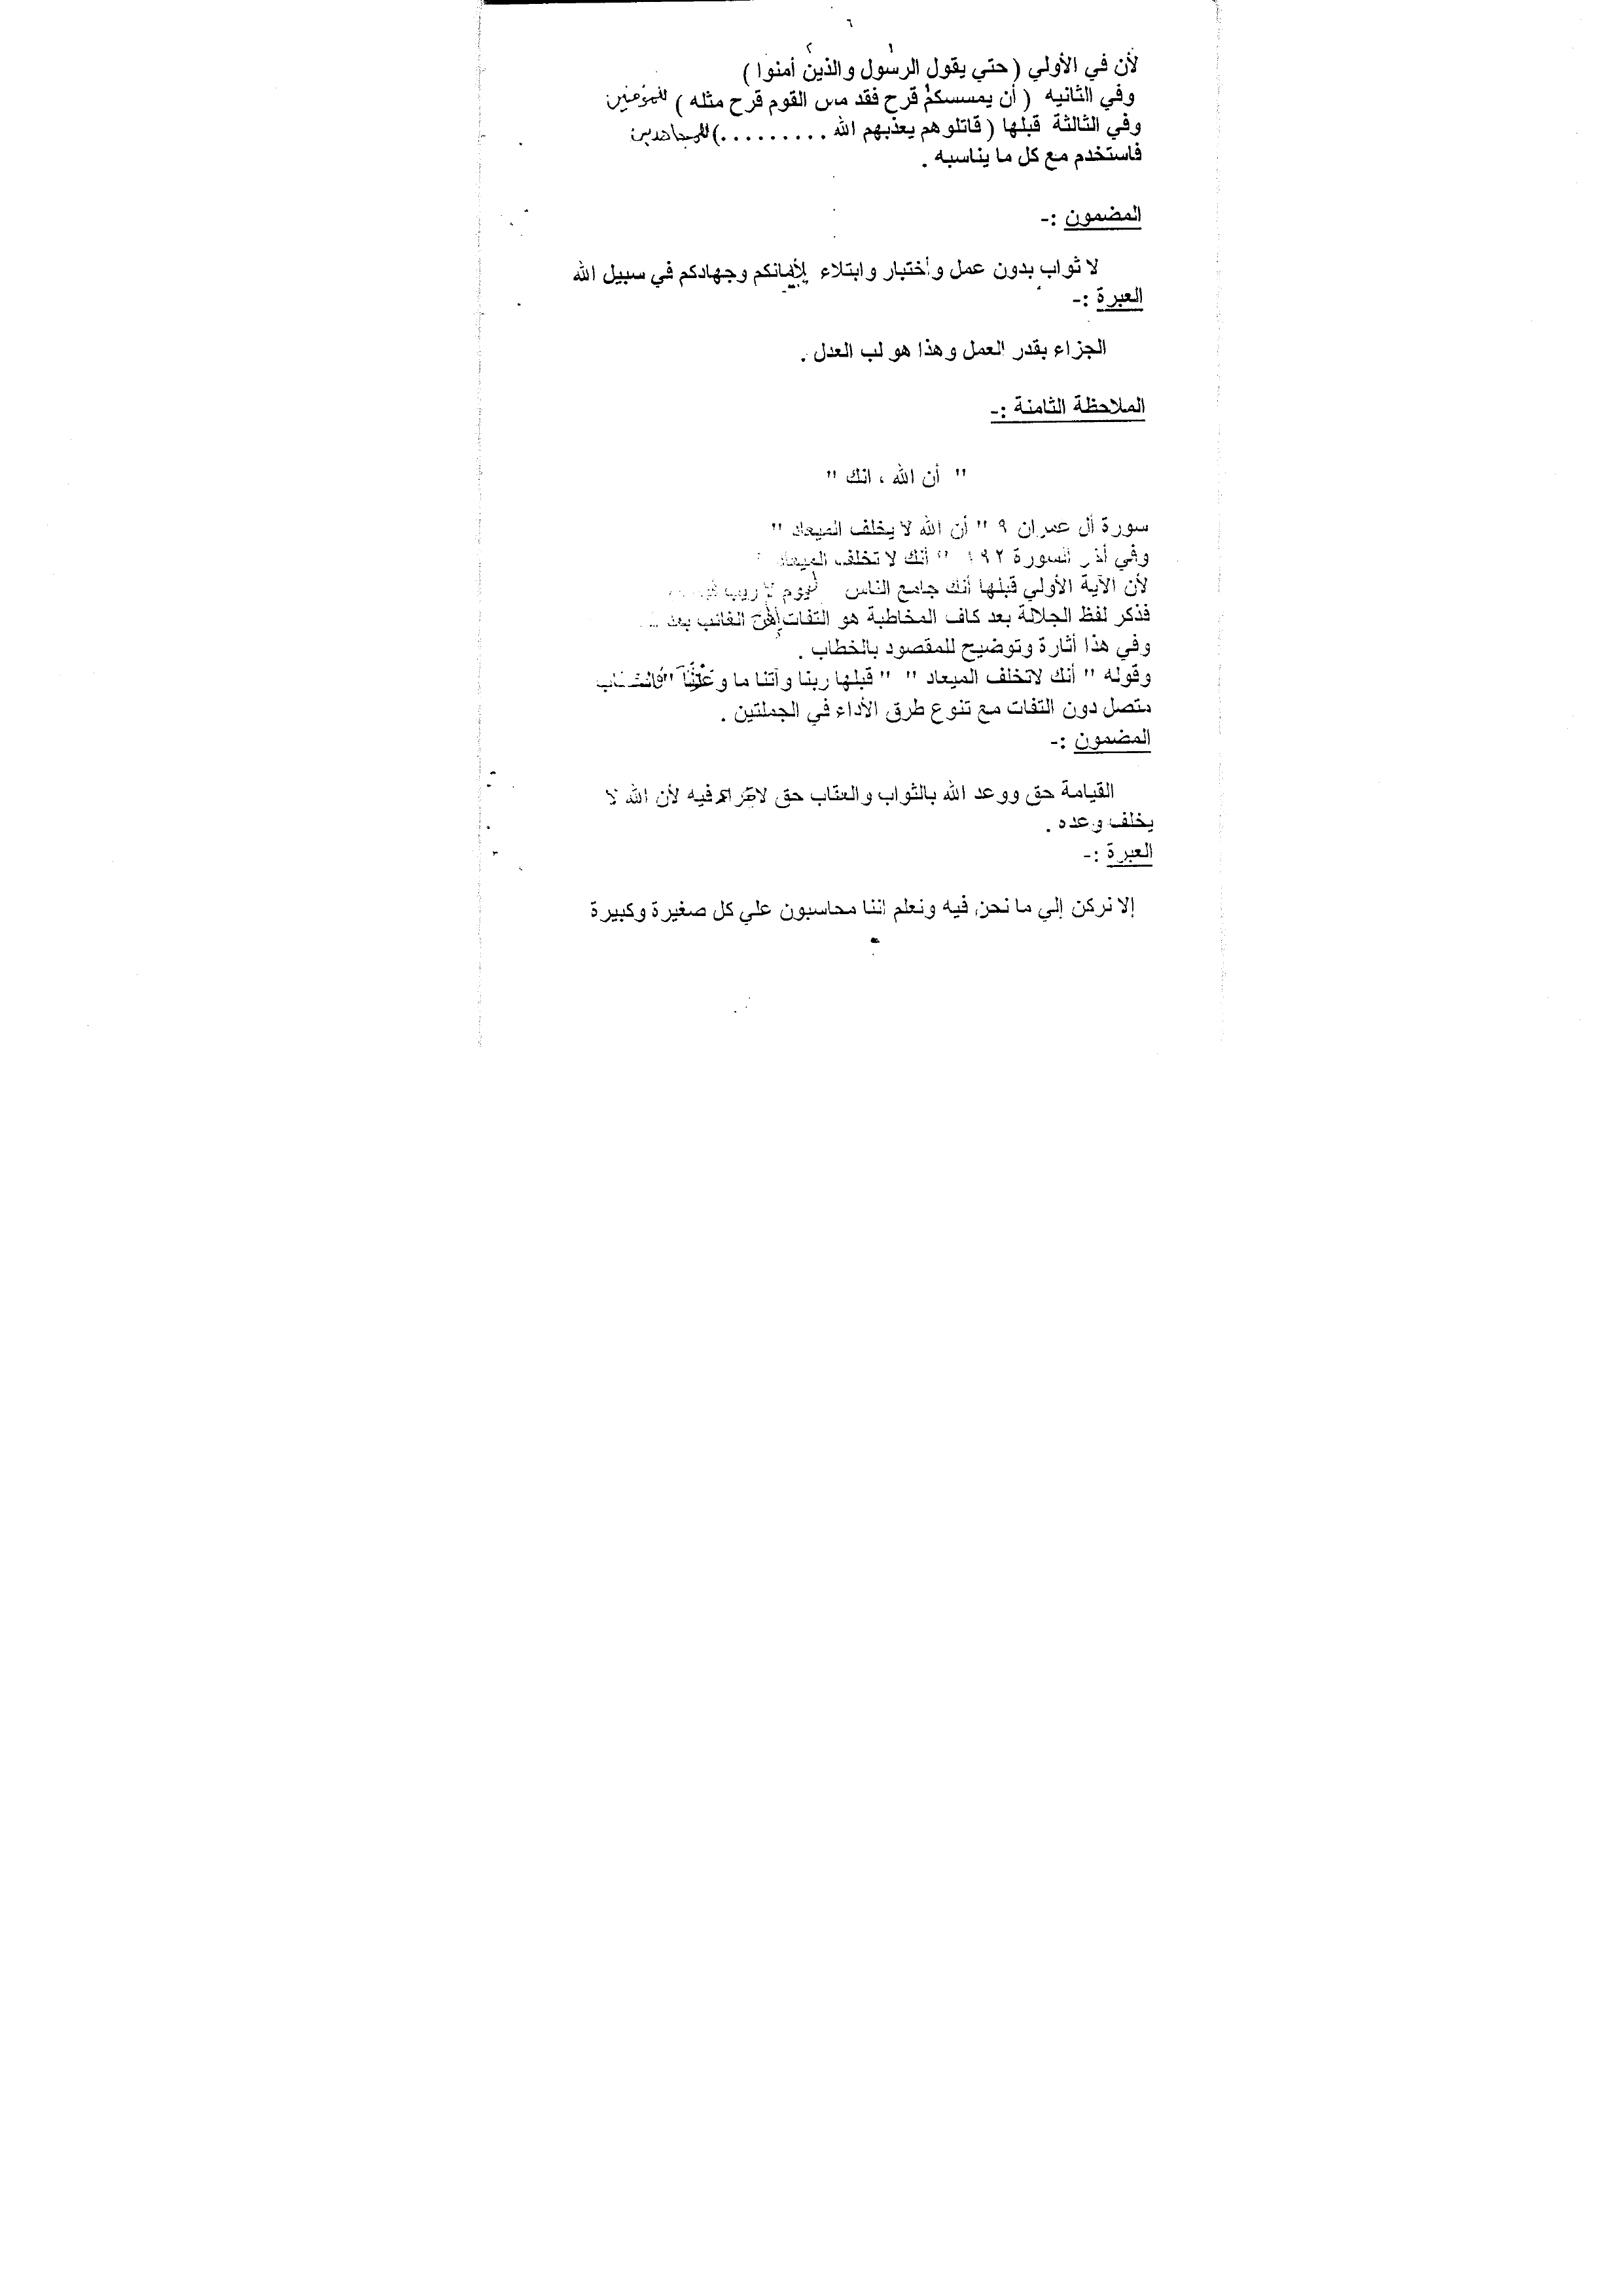 ٦
لأن في الأولي ( حتي يقول الرسول والذين أمنوا )
وفي الثانيه ( أن يمسسكم قرح فقد مس القوم قرح مثله ) للمؤمنين
وفي الثالثة قبلها ( قاتلوهم يعذبهم الله .........) للمجاهدين
فاستخدم مع كل ما يناسبه .
المضمون :-
لا ثواب بدون عمل وأختبار وابتلاء لأيمانكم وجهادكم في سبيل الله
العبرة :-
الجزاء بقدر العمل وهذا هو لب العدل .
الملاحظة الثامنة :-
" أن الله ، انك "
سورة أل عمران ٩ " أن الله لا يخلف الميعاد "
وفي أخر السورة ١٩٢ " أنك لا تخلف الميعاد
لأن الآية الأولي قبلها أنك جامع الناس ليوم لا ريب
فذكر لفظ الجلالة بعد كاف المخاطبة هو التفات الغائب بعد
وفي هذا أثارة وتوضيح للمقصود بالخطاب .
وقوله " أنك لاتخلف الميعاد " " قبلها ربنا وآتنا ما وعدتنا "
متصل دون التفات مع تنوع طرق الأداء في الجملتين .
المضمون :-
القيامة حق ووعد الله بالثواب والعقاب حق فيه لأن الله لا
يخلف وعده .
العبرة :-
إلا نركن إلي ما نحن فيه ونعلم اننا محاسبون علي كل صغيرة وكبيرة